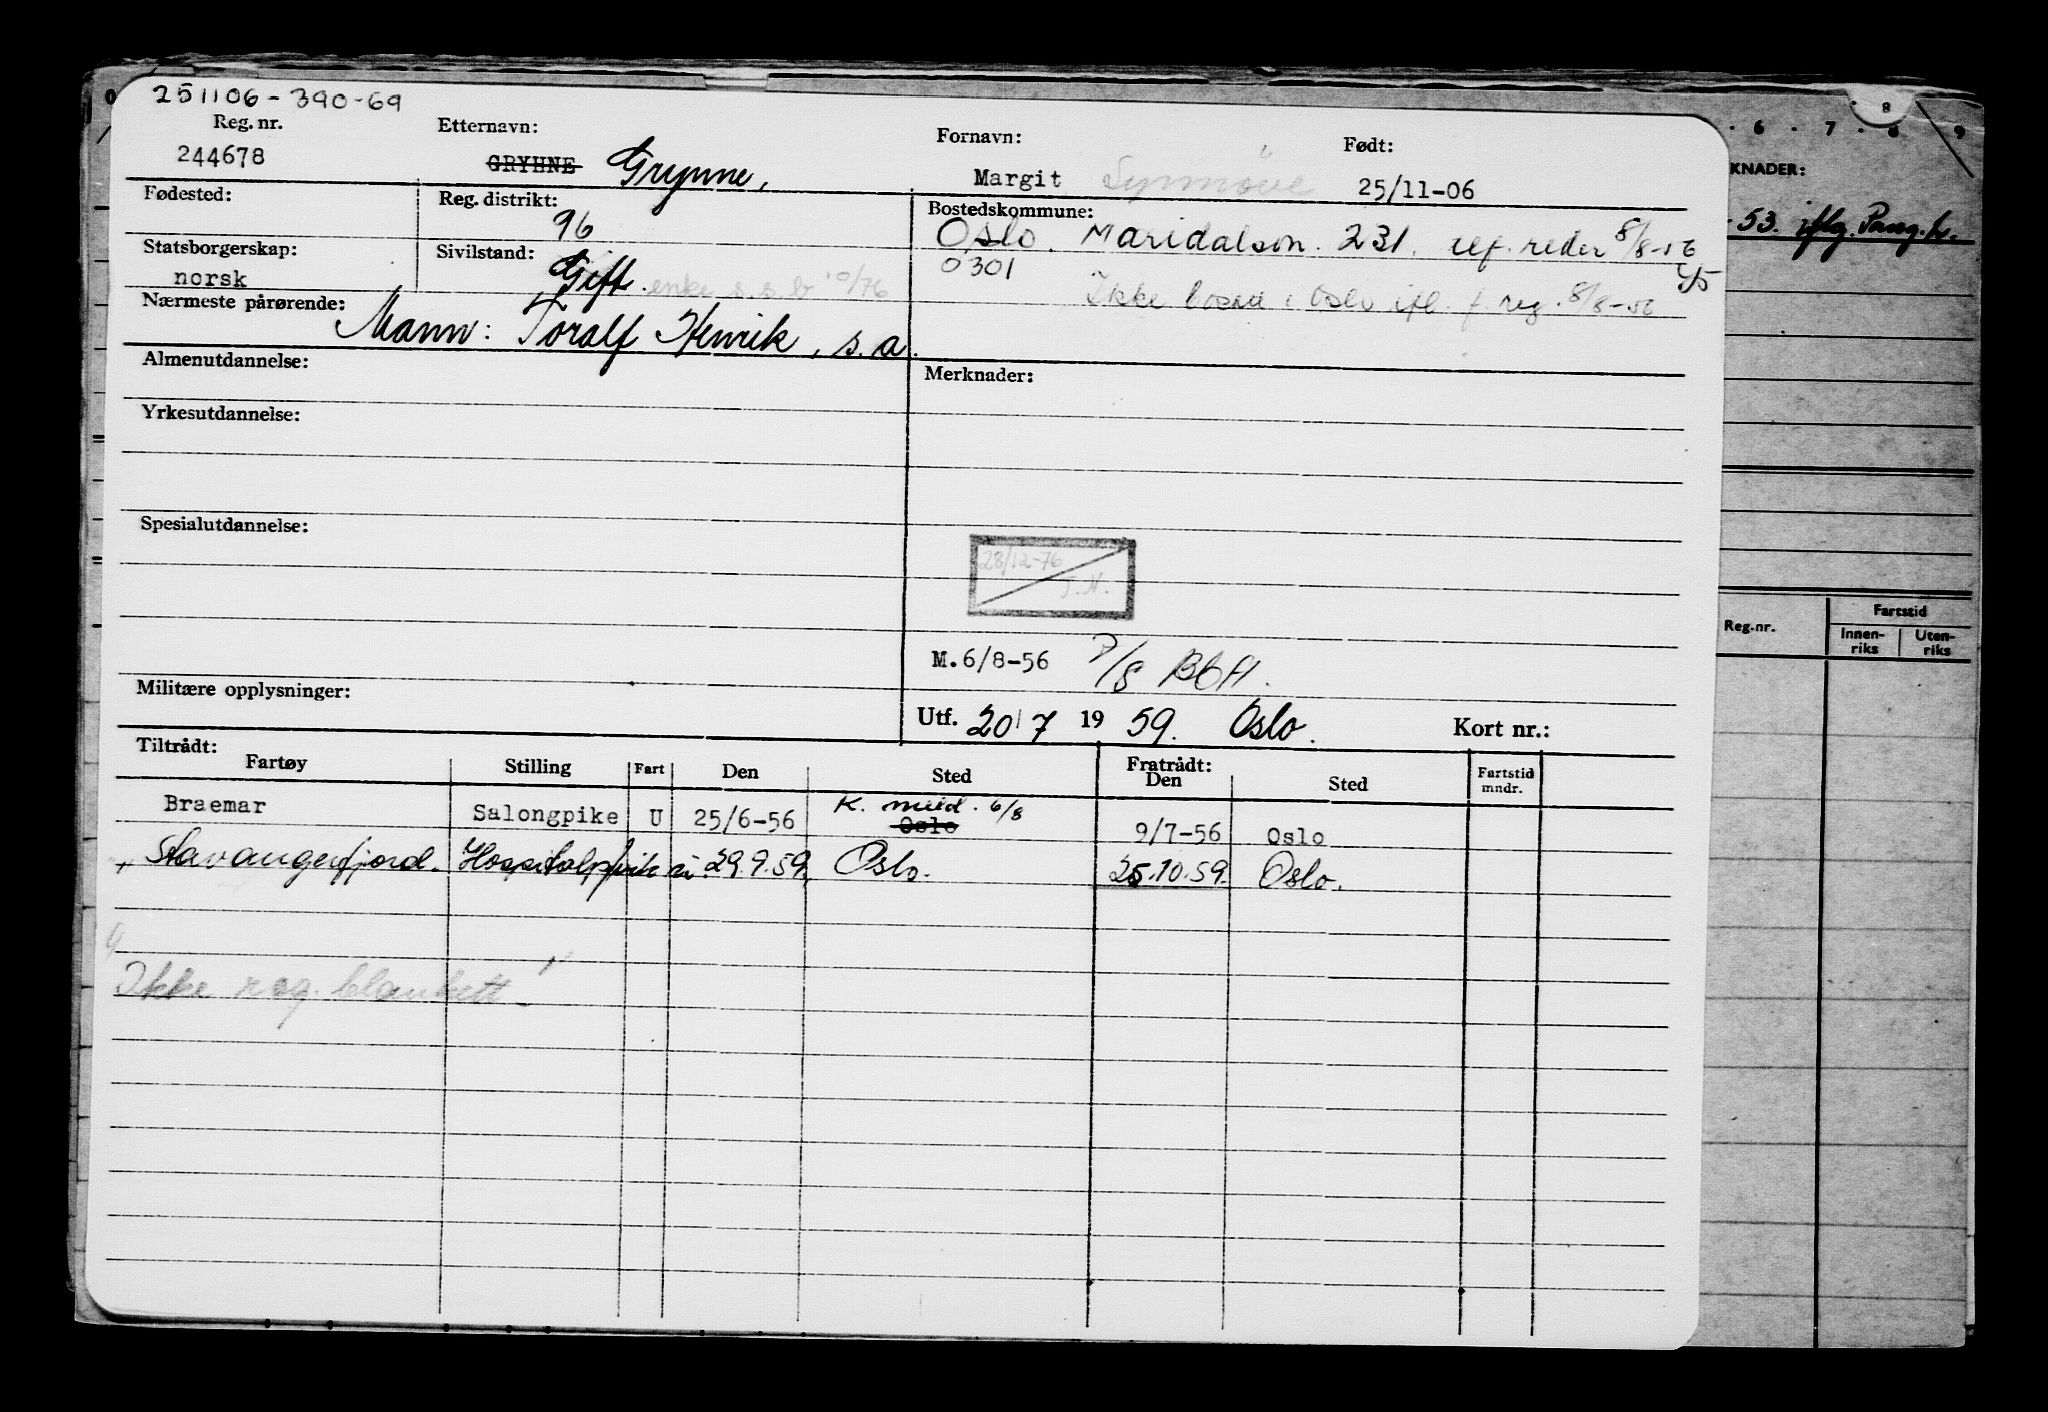 251106-390-69
Reg. nr. Etternavn: Fornavn: Født:
244678 GRYHNE Grynne, Margit Synnøve 25/11-06
Fødested: Reg. distrikt: Bostedskommune:
96 Oslo. Maridalsvn. 231. ref. reder 8/8-56
0301
Statsborgerskap: Sivilstand:
norsk Gift. enke s.s.b 10/76 Ikke bosatt i Oslo ifl. f. reg. 8/8-56
Nærmeste pårørende:
Mann: Toralf Henrik, s.a.
Almenutdannelse: Merknader:
Yrkesutdannelse:
Spesialutdannelse:
28/12-76
T.H.
M.6/8-56
Militære opplysninger:
Utf. 20/7 1959. Oslo. Kort nr.:
Tiltrådt: Fratrådt:
Fartøy Stilling Fart Den Sted Den Sted Fartstid mndr.
Braemar Salongpike U 25/6-56 K. meld. 6/8 Oslo 9/7-56 Oslo
" Stavangerfjord. Hospitalpike u. 29.9.59. Oslo. 25.10.59. Oslo.
Ikke reg. blankett
8
6 . 7 . 8 . 9
KNADER:
53. iflg.
Reg.nr. Fartstid
Innen-riks Uten-riks